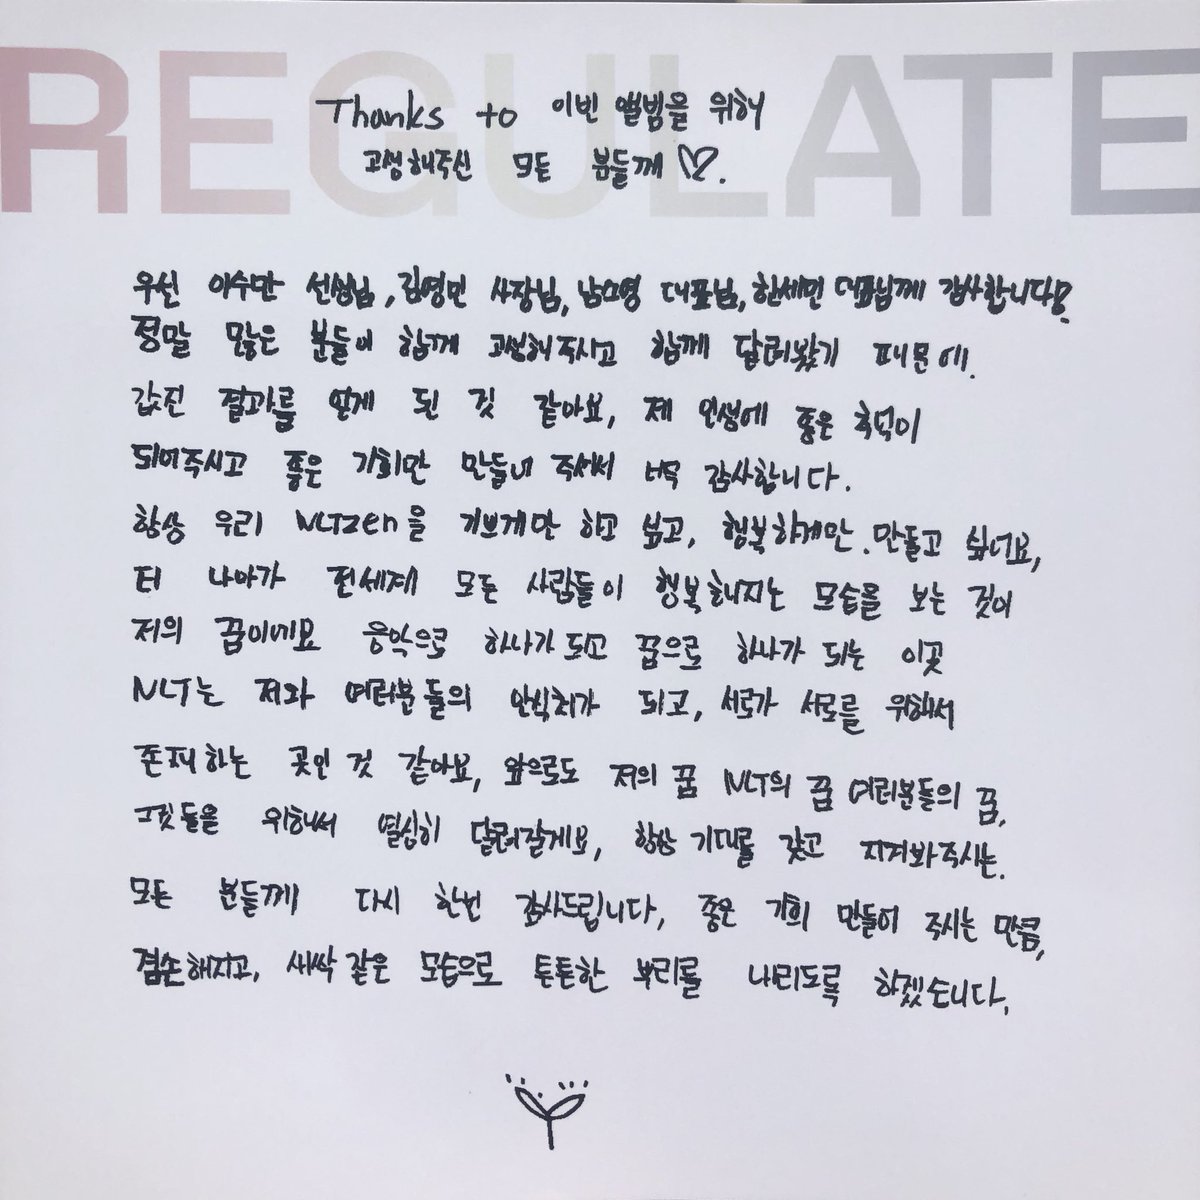 REGULATE
Thanks to 이번 앨범을 위해
고생해주신 모든 분들께♡.
우선 이수만 선생님, 김영민 사장님, 남소영 대표님, 한세민 대표님께 감사합니다!
정말 많은 분들이 함께 고생해주시고 함께 달려왔기 때문에.
값진 결과를 얻게 된 것 같아요, 제 인생에 좋은 추억이
되어주시고 좋은 기회만 만들어 주셔서 너무 감사합니다.
항상 우리 NCTzen을 기쁘게만 하고 싶고, 행복하게만 만들고 싶네요,
더 나아가 전세계 모든 사람들이 행복해지는 모습을 보는 것이
저의 꿈이에요 음악으로 하나가 되고 꿈으로 하나가 되는 이곳
NCT는 저와 여러분들의 안식처가 되고, 서로가 서로를 위해서
존재하는 곳인 것 같아요, 앞으로도 저의 꿈 NCT의 꿈 여러분들의 꿈,
그것들을 위해서 열심히 달려갈게요, 항상 기대를 갖고 지켜봐주시는.
모든 분들께 다시 한번 감사드립니다, 좋은 기회 만들어 주시는 만큼,
겸손해지고, 새싹 같은 모습으로 튼튼한 뿌리를 내리도록 하겠습니다.